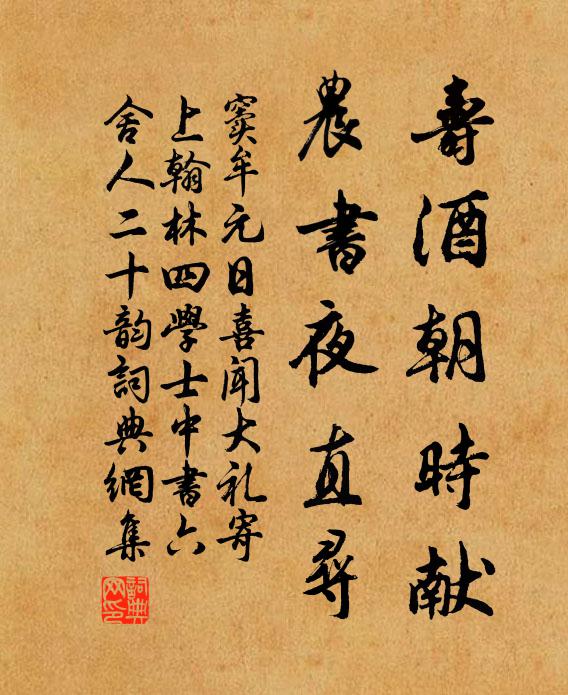 壽酒朝時献
農書夜直尋
窦牟元日喜聞大礼寄
上翰林四學士中書六
舍人二十韵詞典網集
詞典
网印